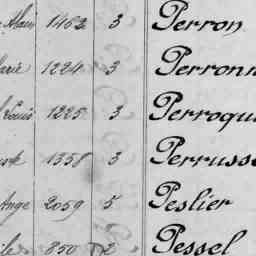 1462 3 Perron
1224 3 Perronn
Louis 1225 3 Perroqu
1358 3 Perrusse
Ange 2059 5 Peslier
850 2 Pessel